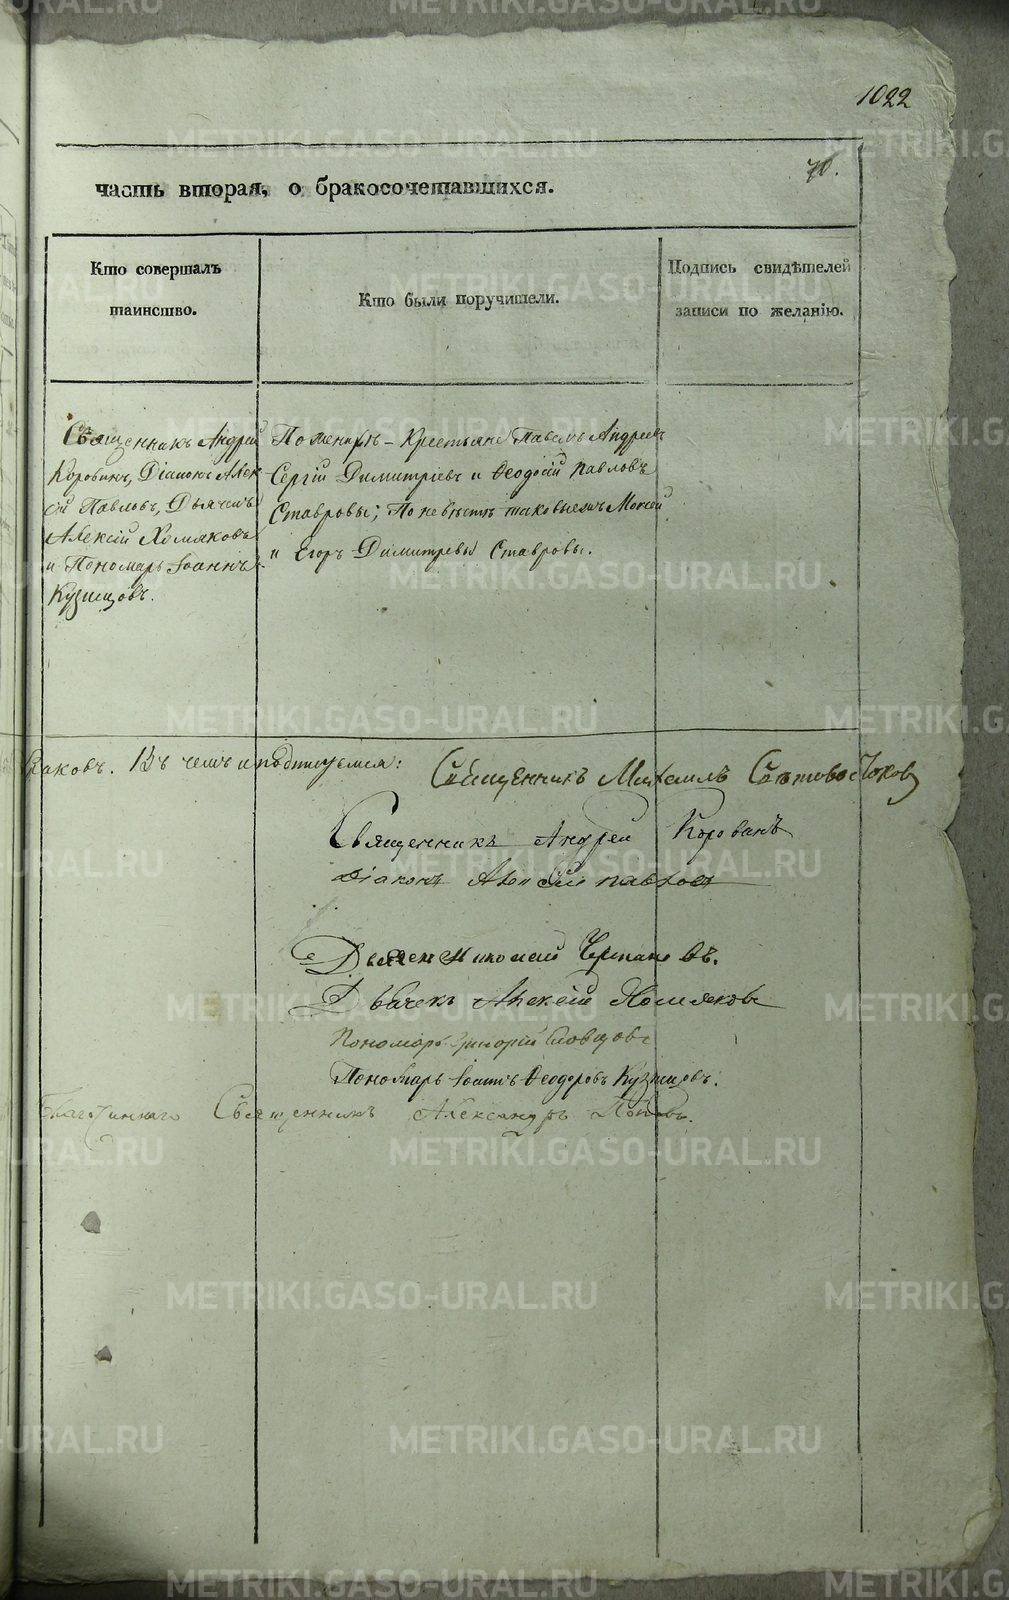 1022
70.
часть вторая, о бракосочетавшихся.
Кто совершалъ
таинство.
Кто были поручители.
Подпись свидѣтелей
записи по желанію.
Священникъ Андрей
Коровинъ, Діаконъ Алек-
сій Павловъ, Дьячекъ
Алексій Хомяковъ
и Пономарь Іоаннъ
Кузнецовъ.
По женихѣ - Крестьяне Павелъ Андреевъ
Сергій Димитріевъ и Ѳеодосій Павловъ
Ставровы; По невѣстѣ таковыежъ Моисей
и Егоръ Димитревы Ставровы.
браковъ. Въ чемъ и подпишемся:
Священникъ Михаилъ
Священникъ Андрей Коровинъ
Діаконъ Алексій Павловъ
Дьячекъ Николай
Дьячекъ Алексій Хомяковъ
Пономарь Григорій Словцовъ
Пономарь Іоаннъ Ѳеодоровъ Кузнецовъ.
Благочинный Священникъ Александръ Поповъ.
METRIKI.GASO-URAL.RU